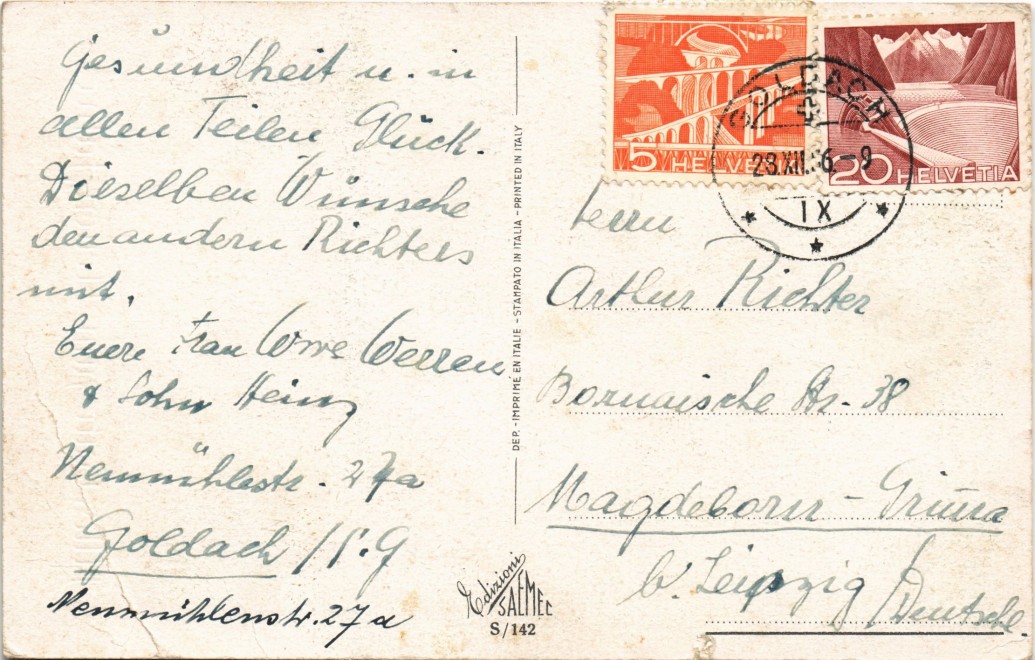 Gesundheit u. in
allen Teilen Glück.
Dieselben Wünsche
den andern Richters
mit.
Euere Frau Wwe Werren
& Sohn Heinz
Neumühlestr. 27a
Goldach / S.G
Neumühlenstr. 27a
DEP. - IMPRIME EN ITALIE - STAMPATO IN ITALIA - PRINTED IN ITALY
Edizioni
SAEMEC
S/142
5 HELVETIA
20 HELVETIA
GOLDACH
23.XII.56.-9
IX
Herrn
Arthur Richter
Bornaische Str. 38
Magdeborn - Gruna
b. Leipzig